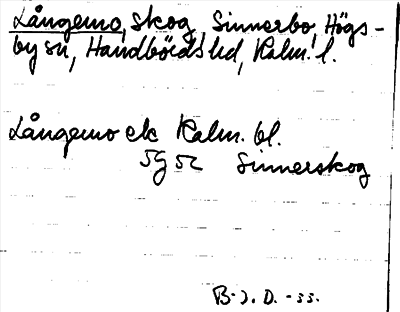 Långemo, skog, Sinnerbo, Högs-
by sn, Handbörds hd, Kalm. l.
Långemo ek Kalm. bl.
5g 52 Sinnerskog
B. J. D. -33.